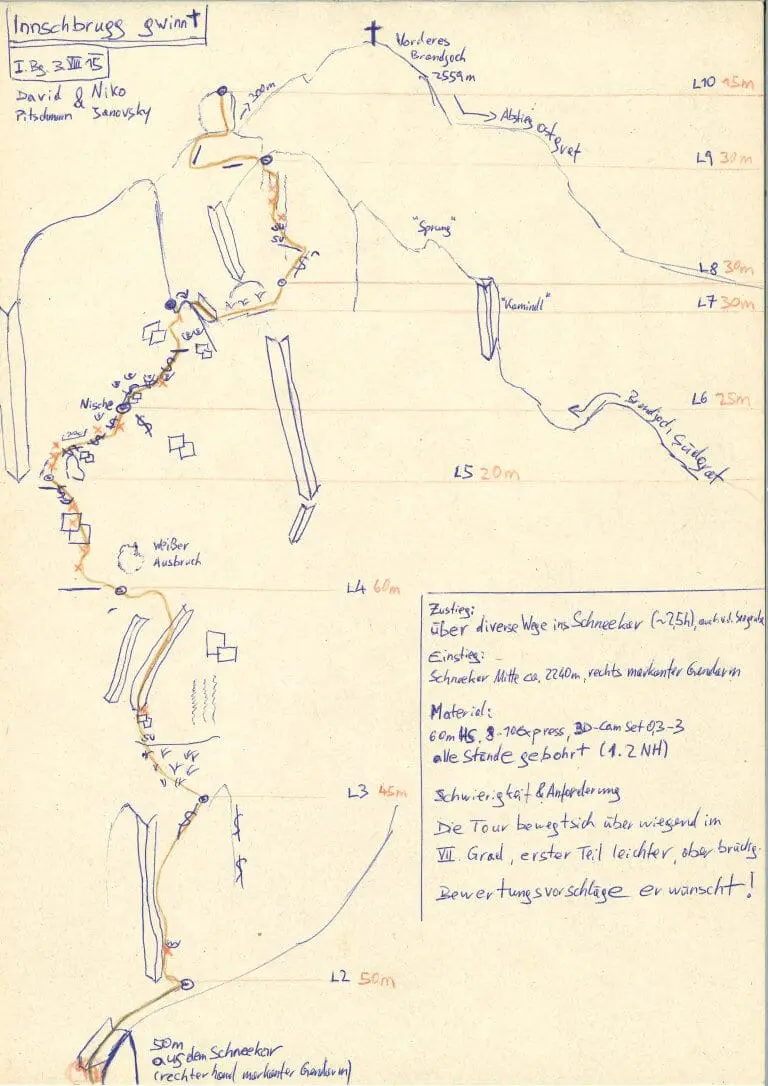 Innschbrugg gwinnt
I.Bg. 3.VIII 15
David & Niko
Pitschmann Janovsky
Vorderes
Brandjoch
2559m
~200m
Abstieg Ostgrat
L10 45m
L9 30m
"Sprung"
L8 30m
L7 30m
"Kamindl"
L6 25m
Brandjoch Südgrat
Nische
L5 20m
Weißer
Ausbruch
L4 60m
Zustieg:
über diverse Wege ins Schneekar (~2,5h), auch v.d.
Einstieg:
Schneekar Mitte ca. 2240m, rechts markanter Gendarm
Material:
60m HS, 8-10 Express, 3D-Cam Set 0,3-3
alle Stände gebohrt (1.2 NH)
Schwierigkeit & Anforderung
Die Tour bewegt sich überwiegend im
VII. Grad, erster Teil leichter, aber brüchig.
Bewertungsvorschläge erwünscht!
L3 45m
L2 50m
50m
aus dem Schneekar
(rechter hand markanter Gendarm)